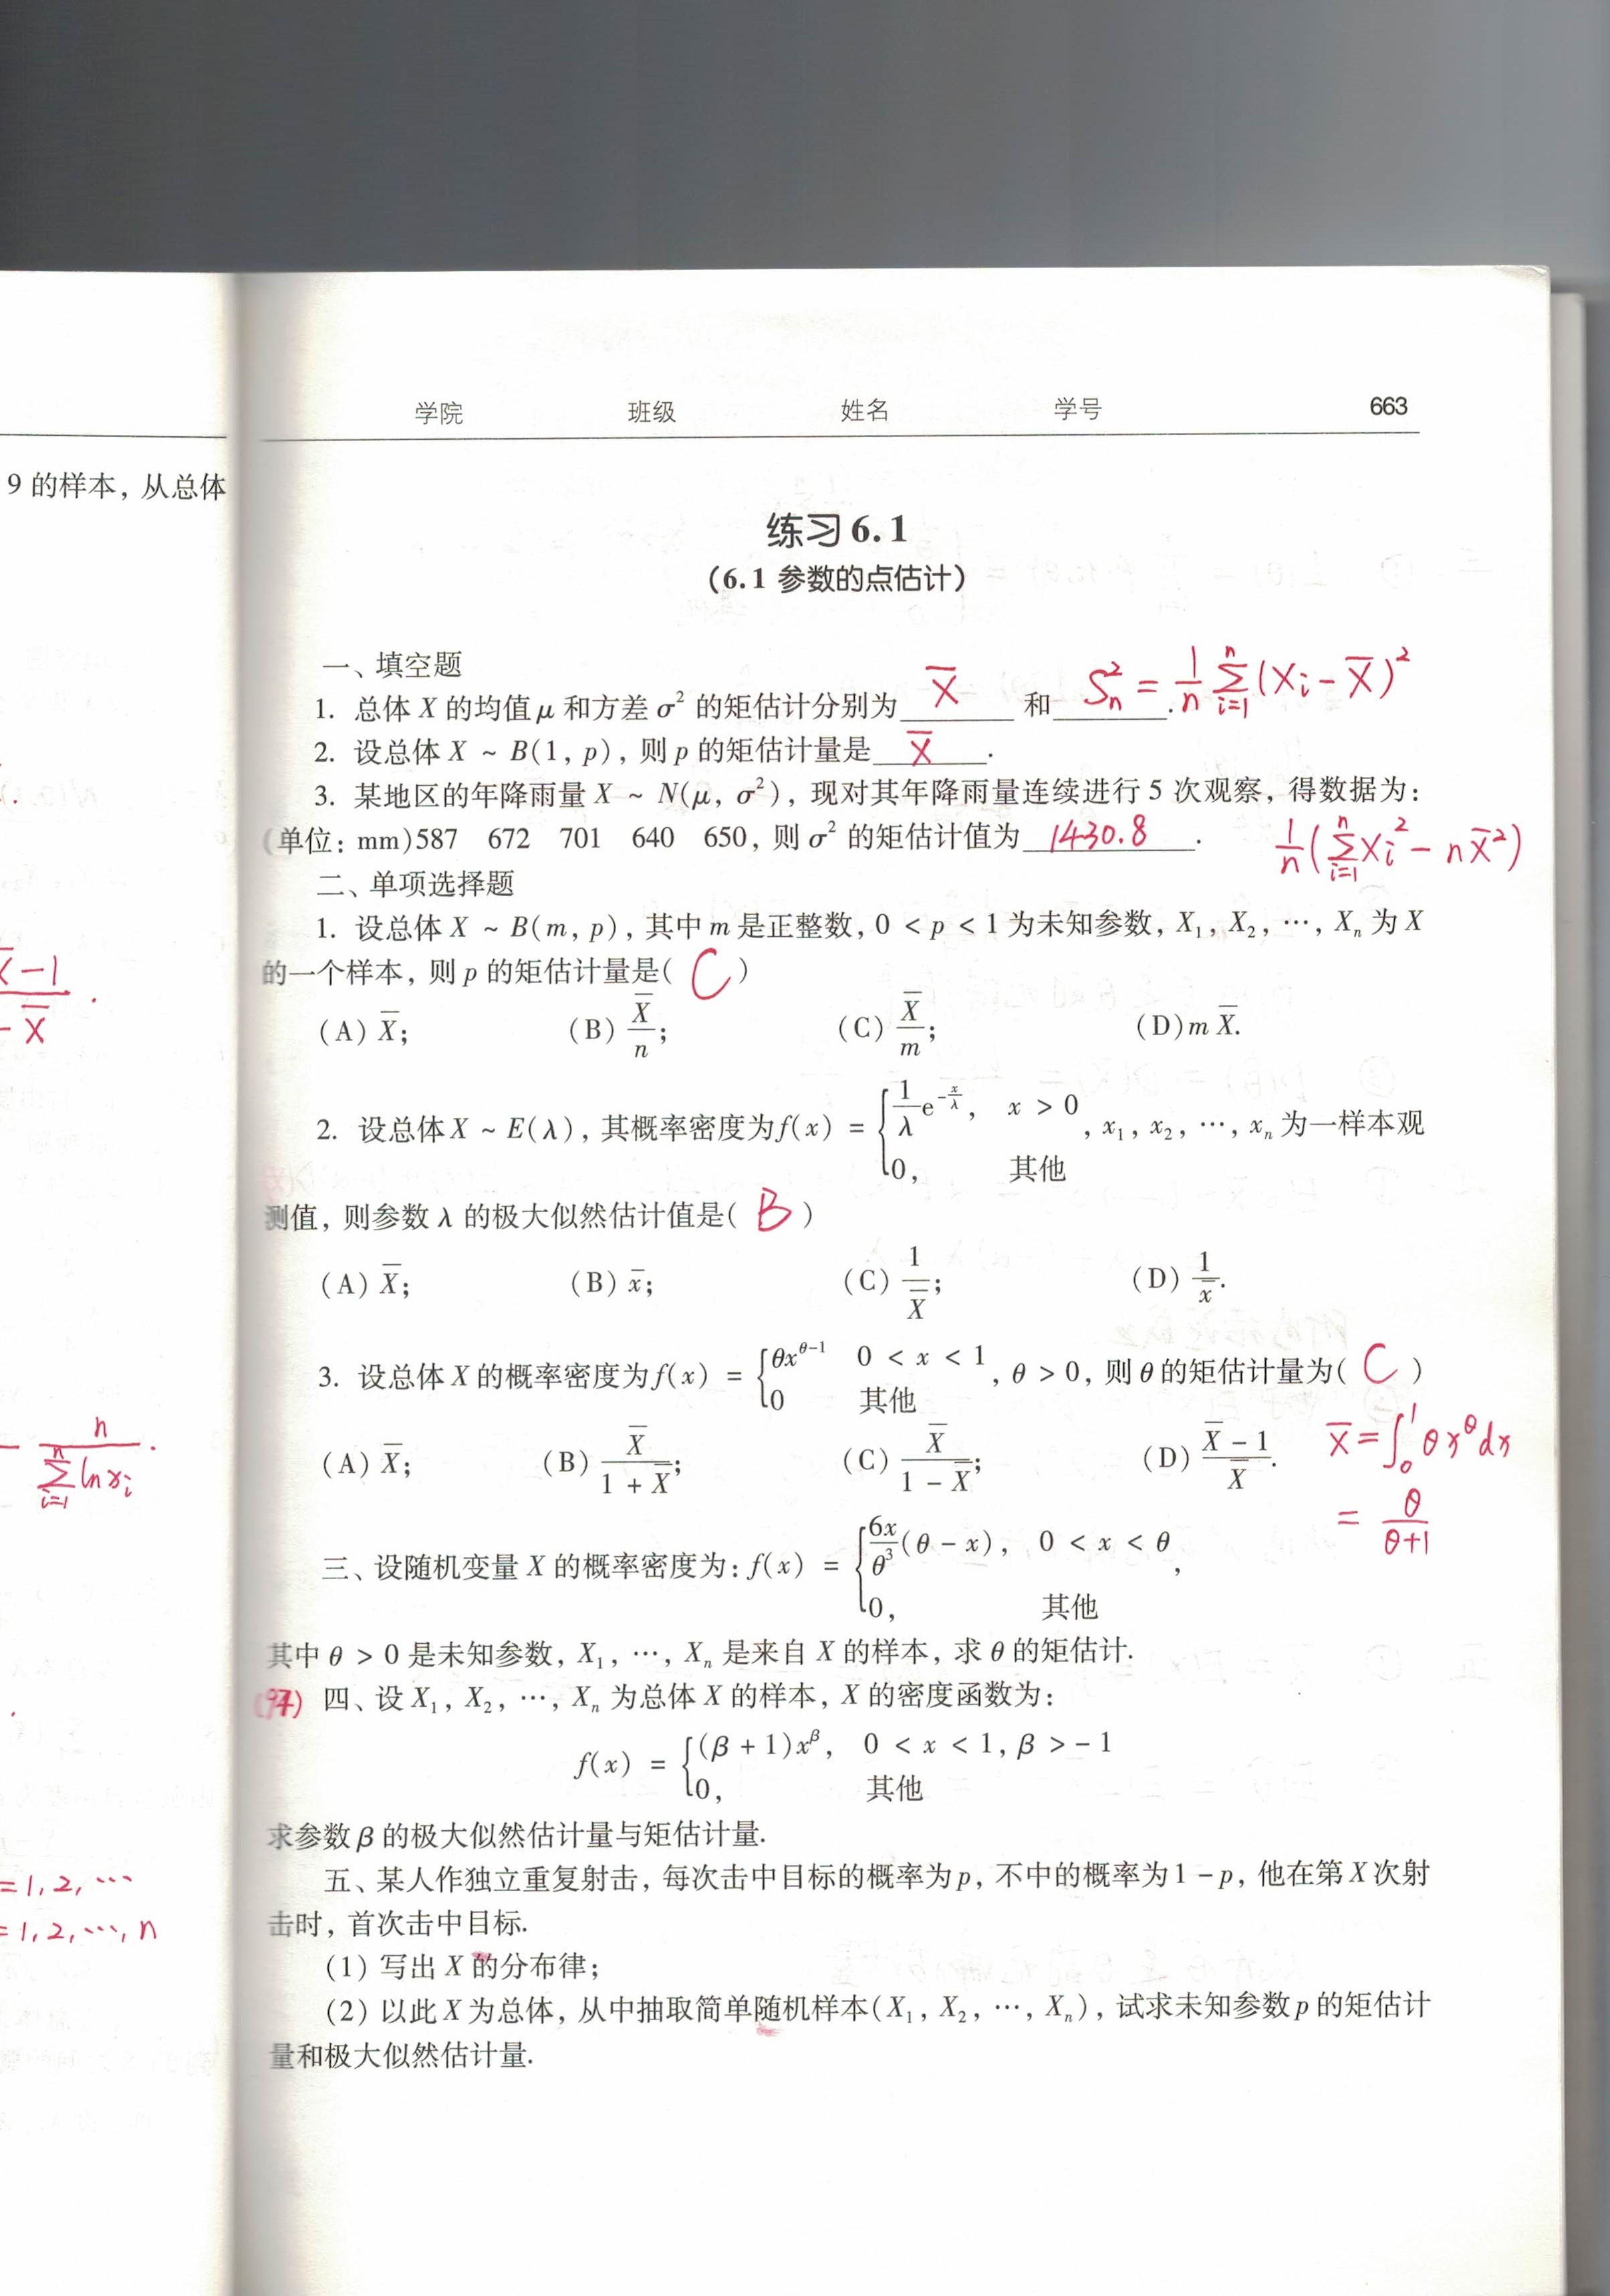 9 的样本, 从总体
X̄ - 1
- X̄
- n / Σ_{i=1}^{n} ln x_i .
= 1, 2, ⋯
= 1, 2, ⋯, n
学院 班级 姓名 学号 663
练习 6.1
(6.1 参数的点估计)
一、填空题
1. 总体 X 的均值 μ 和方差 σ² 的矩估计分别为 X̄ 和 S_n² = 1/n Σ_{i=1}^{n} (X_i - X̄)² .
2. 设总体 X ~ B(1, p), 则 p 的矩估计量是 X̄ .
3. 某地区的年降雨量 X ~ N(μ, σ²), 现对其年降雨量连续进行 5 次观察, 得数据为:
(单位: mm)587 672 701 640 650, 则 σ² 的矩估计值为 1430.8 . 1/n (Σ_{i=1}^{n} X_i² - nX̄²)
二、单项选择题
1. 设总体 X ~ B(m, p), 其中 m 是正整数, 0 < p < 1 为未知参数, X₁, X₂, ⋯, X_n 为 X
的一个样本, 则 p 的矩估计量是( C )
(A) X̄; (B) X̄/n; (C) X̄/m; (D) m X̄.
2. 设总体 X ~ E(λ), 其概率密度为 f(x) = { 1/λ e^{-x/λ}, x > 0 0, 其他 , x₁, x₂, ⋯, x_n 为一样本观
测值, 则参数 λ 的极大似然估计值是( B )
(A) X̄; (B) x̄; (C) 1/X̄; (D) 1/x̄.
3. 设总体 X 的概率密度为 f(x) = { θx^{θ-1} 0 < x < 1 0 其他 , θ > 0, 则 θ 的矩估计量为( C )
(A) X̄; (B) X̄/(1 + X̄); (C) X̄/(1 - X̄); (D) (X̄ - 1)/X̄. X̄ = ∫₀¹ θx^θ dx
= θ/(θ+1)
三、设随机变量 X 的概率密度为: f(x) = { 6x/θ³ (θ - x), 0 < x < θ 0, 其他 ,
其中 θ > 0 是未知参数, X₁, ⋯, X_n 是来自 X 的样本, 求 θ 的矩估计.
(97) 四、设 X₁, X₂, ⋯, X_n 为总体 X 的样本, X 的密度函数为:
f(x) = { (β + 1)x^β, 0 < x < 1, β > - 1
0, 其他
求参数 β 的极大似然估计量与矩估计量.
五、某人作独立重复射击, 每次击中目标的概率为 p, 不中的概率为 1 - p, 他在第 X 次射
击时, 首次击中目标.
(1) 写出 X 的分布律;
(2) 以此 X 为总体, 从中抽取简单随机样本(X₁, X₂, ⋯, X_n), 试求未知参数 p 的矩估计
量和极大似然估计量.